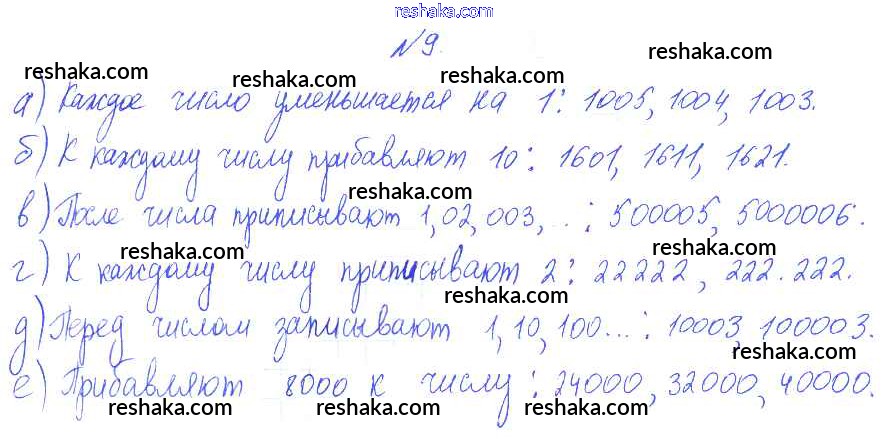 reshaka.com
№9.
reshaka.com
reshaka.com reshaka.com reshaka.com
а) Каждое число уменьшается на 1: 1005, 1004, 1003.
б) К каждому числу прибавляют 10: 1601, 1611, 1621.
reshaka.com
в) После числа приписывают 1, 02, 003, ..: 500005, 5000006.
reshaka.com reshaka.com reshaka.com
г) К каждому числу приписывают 2: 22222, 222.222.
reshaka.com
д) Перед числом записывают 1, 10, 100...: 10003, 100003.
reshaka.com
е) Прибавляют 8000 к числу: 24000, 32000, 40000.
reshaka.com reshaka.com reshaka.com